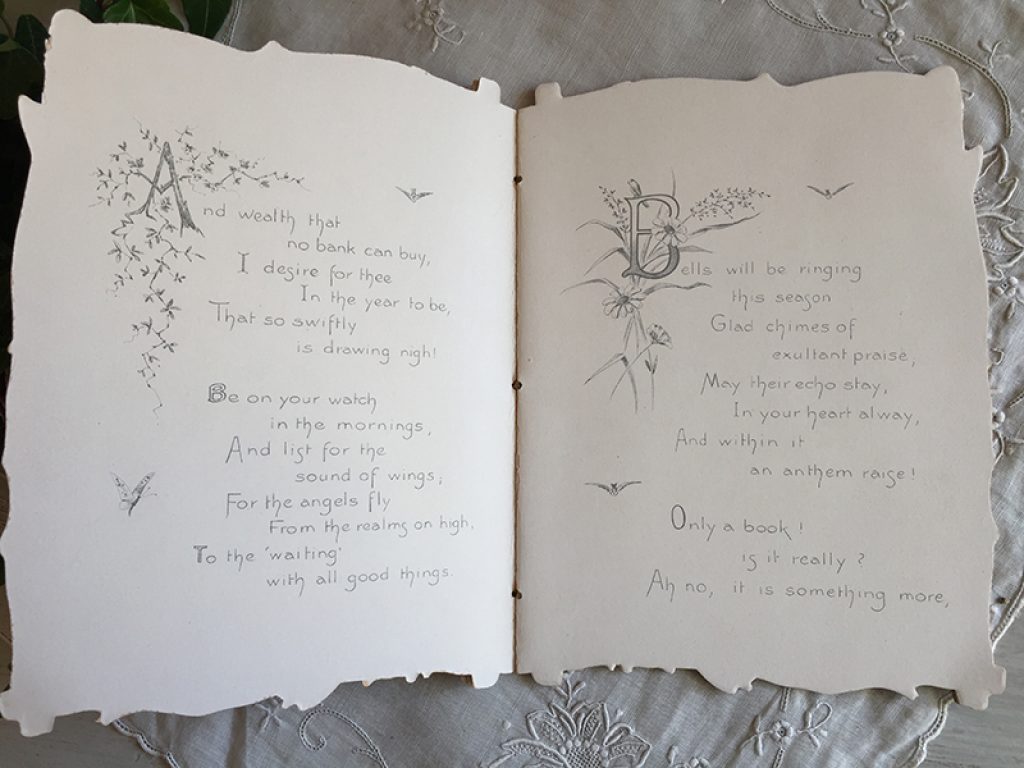 And wealth that
no bank can buy,
I desire for thee
In the year to be,
That so swiftly
is drawing nigh!
Be on your watch
in the mornings,
And list for the
sound of wings;
For the angels fly
From the realms on high,
To the 'waiting'
with all good things.
Bells will be ringing
this season
Glad chimes of
exultant praise,
May their echo stay,
In your heart alway,
And within it
an anthem raise!
Only a book!
is it really?
Ah no, it is something more,